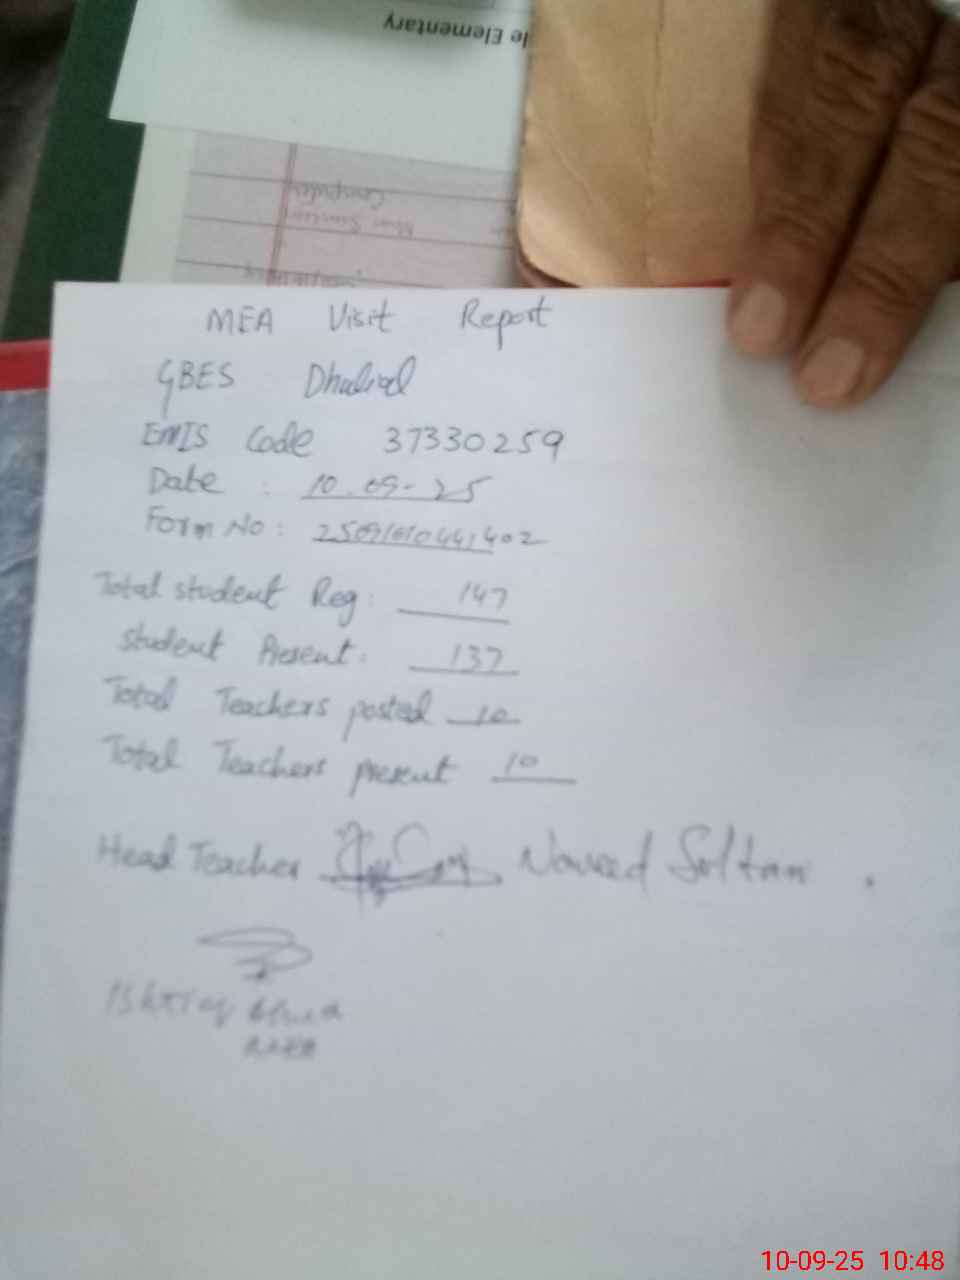 le Elementary
Computer
MEA Visit Report
GBES Dhulial
EMIS Code 37330259
Date : 10.09-25
Form No:
Total student Reg: 147
student Present: 137
Total Teachers posted 10
Total Teachers present 10
Head Teacher Naveed Soltan .
10-09-25 10:48